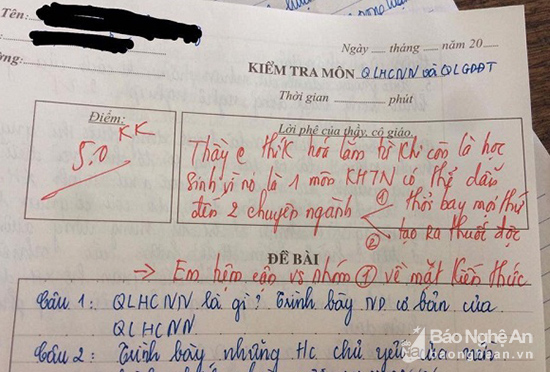 Tên:
Ngày ___ tháng ___ năm 20___
KIỂM TRA MÔN QLHCNN và QLGDĐT
Thời gian ________ phút
Điểm:
KK
5.0
Lời phê của thầy, cô giáo.
Thầy e thik hoá lắm từ khi còn là học
sinh vì nó là 1 môn KHTN có thể dẫn
đến 2 chuyên ngành
① thổi bay mọi thứ
② tạo ra thuốc độc
ĐỀ BÀI
→ Em hiện cận vs nhóm ① về mặt kiến thức
Câu 1: QLHCNN là gì? Trình bày ND cơ bản của
QLHCNN
Câu 2: Trình bày những Hc chủ yếu
Báo Nghệ An
baonghean.vn